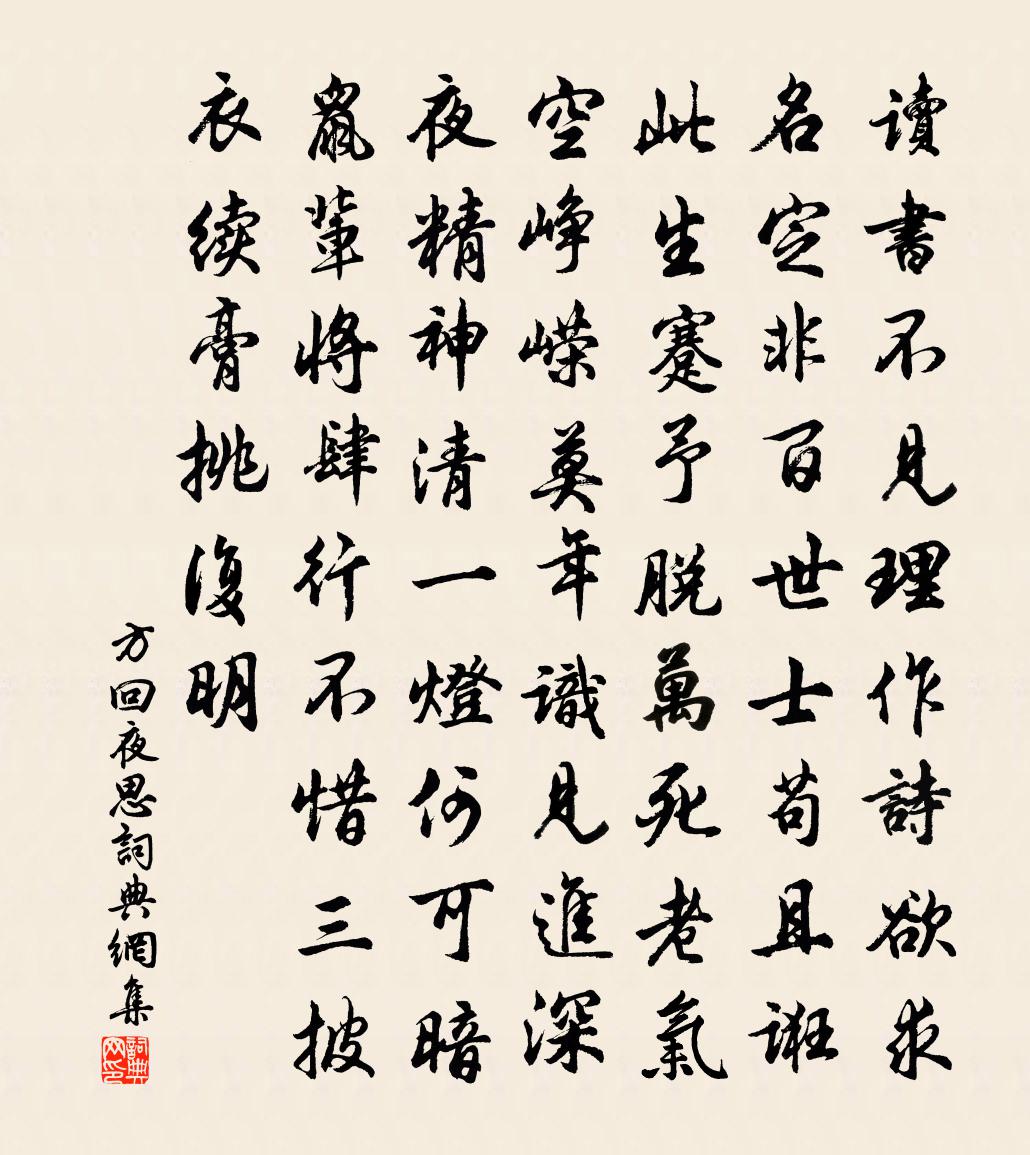 讀書不見理作詩欲求
名定非百世士苟且誑
此生蹇予脫萬死老氣
空崢嶸莫年識見進深
夜精神清一燈何可暗
鼠輩將肆行不惜三披
衣续膏挑復明
方回夜思詞典網集
詞典网印